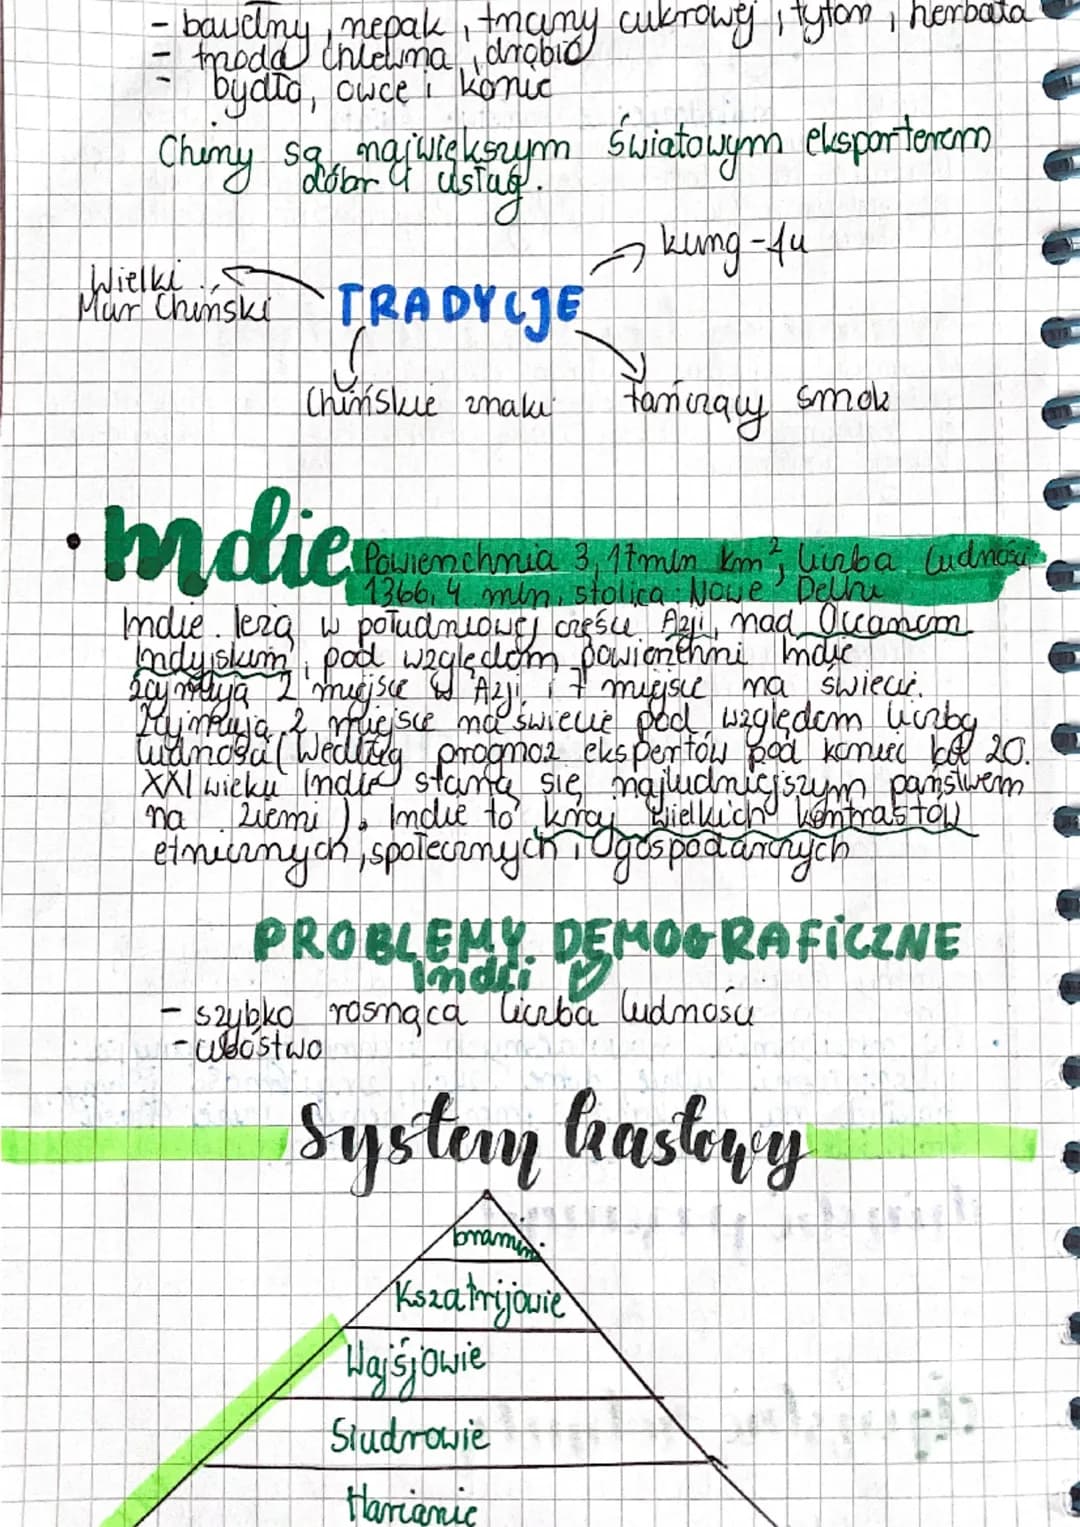 - bawełny, rzepak, trzciny cukrowej, tytoń, herbata
- trzoda chlewna, drobiu
- bydło, owce i konie
Chiny są największym światowym eksporterem
dóbr i usług.
kung-fu
Wielki
Mur Chiński
TRADYCJE
Chińskie znaki
tańczący smok
• Indie
Powierzchnia 3,17mln km², liczba ludności
1366,4 mln, stolica: Nowe Delhi
Indie leżą w południowej części Azji, nad Oceanem
Indyjskim, pod względem powierzchni Indie
zajmują 2 miejsce w Azji i 7 miejsce na świecie.
Zajmują 2 miejsce na świecie pod względem liczby
ludności (Według prognoz ekspertów pod koniec lat 20.
XXI wieku Indie staną się najludniejszym państwem
na ziemi). Indie to kraj wielkich kontrastów
etnicznych, społecznych i gospodarczych
PROBLEMY DEMOGRAFICZNE
Indii
- szybko rosnąca liczba ludności
- ubóstwo
System kastowy
bramini
Kszatrijowie
Wajśjowie
Siudrowie
Harianie